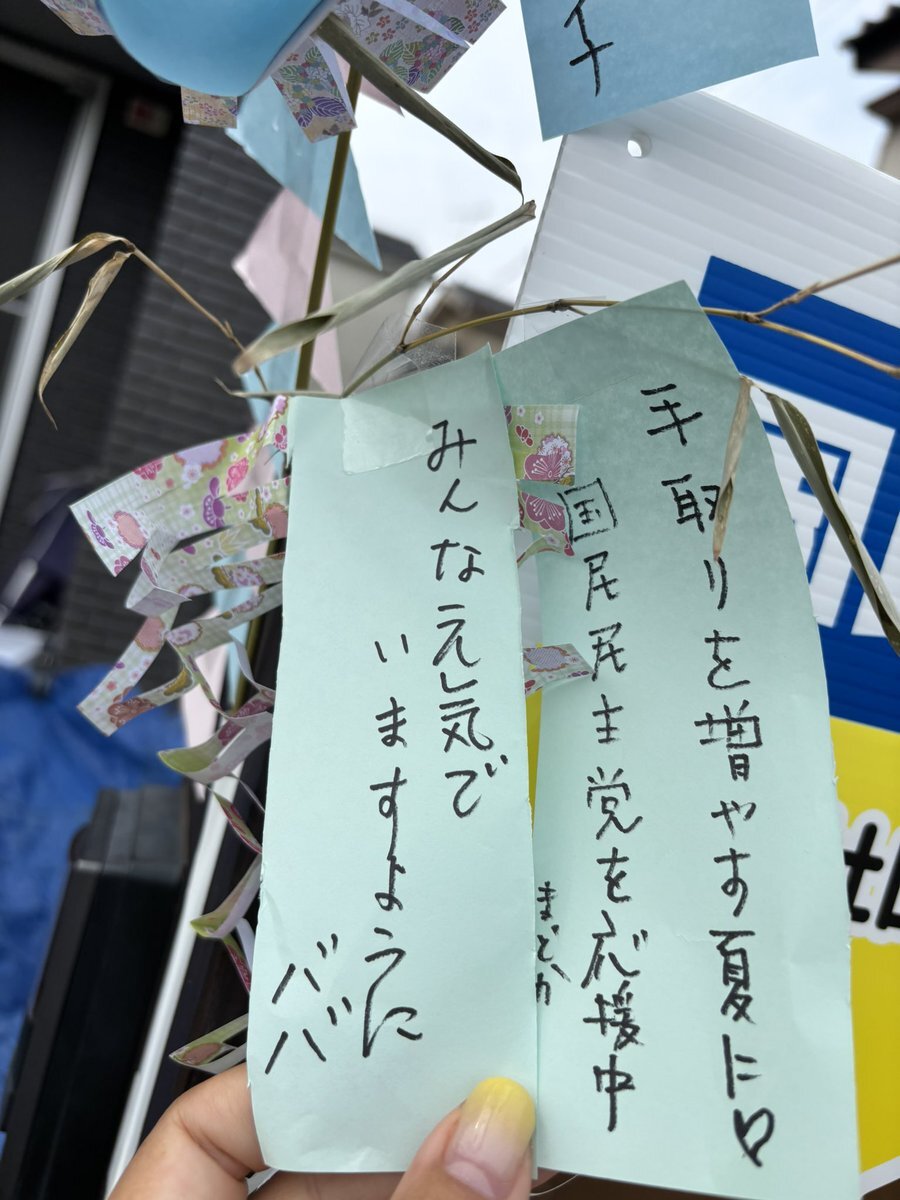 手取りを増やす夏に♡
国民民主党を応援中
まどか
みんな元気で
いますように
ババ